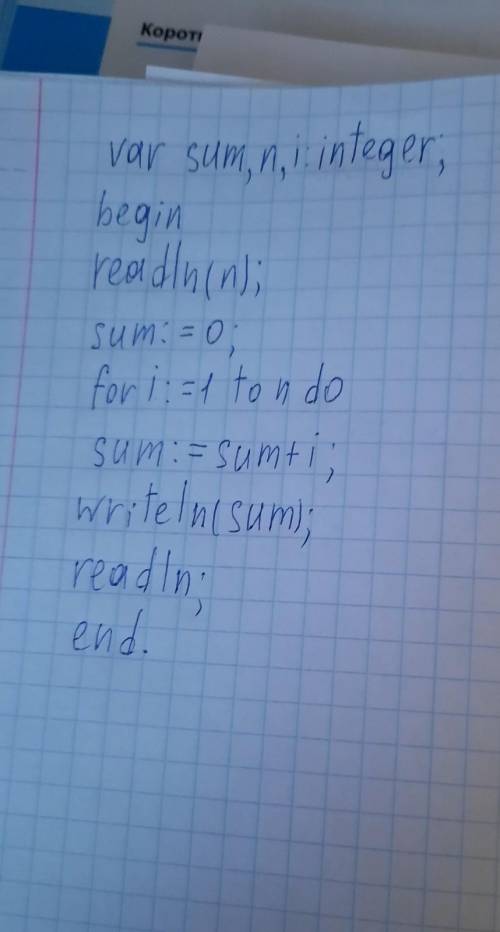 Корот
var sum, n, i: integer;
begin
readln(n);
sum:=0;
for i:=1 to n do
sum:=sum+i;
writeln(sum);
readln;
end.